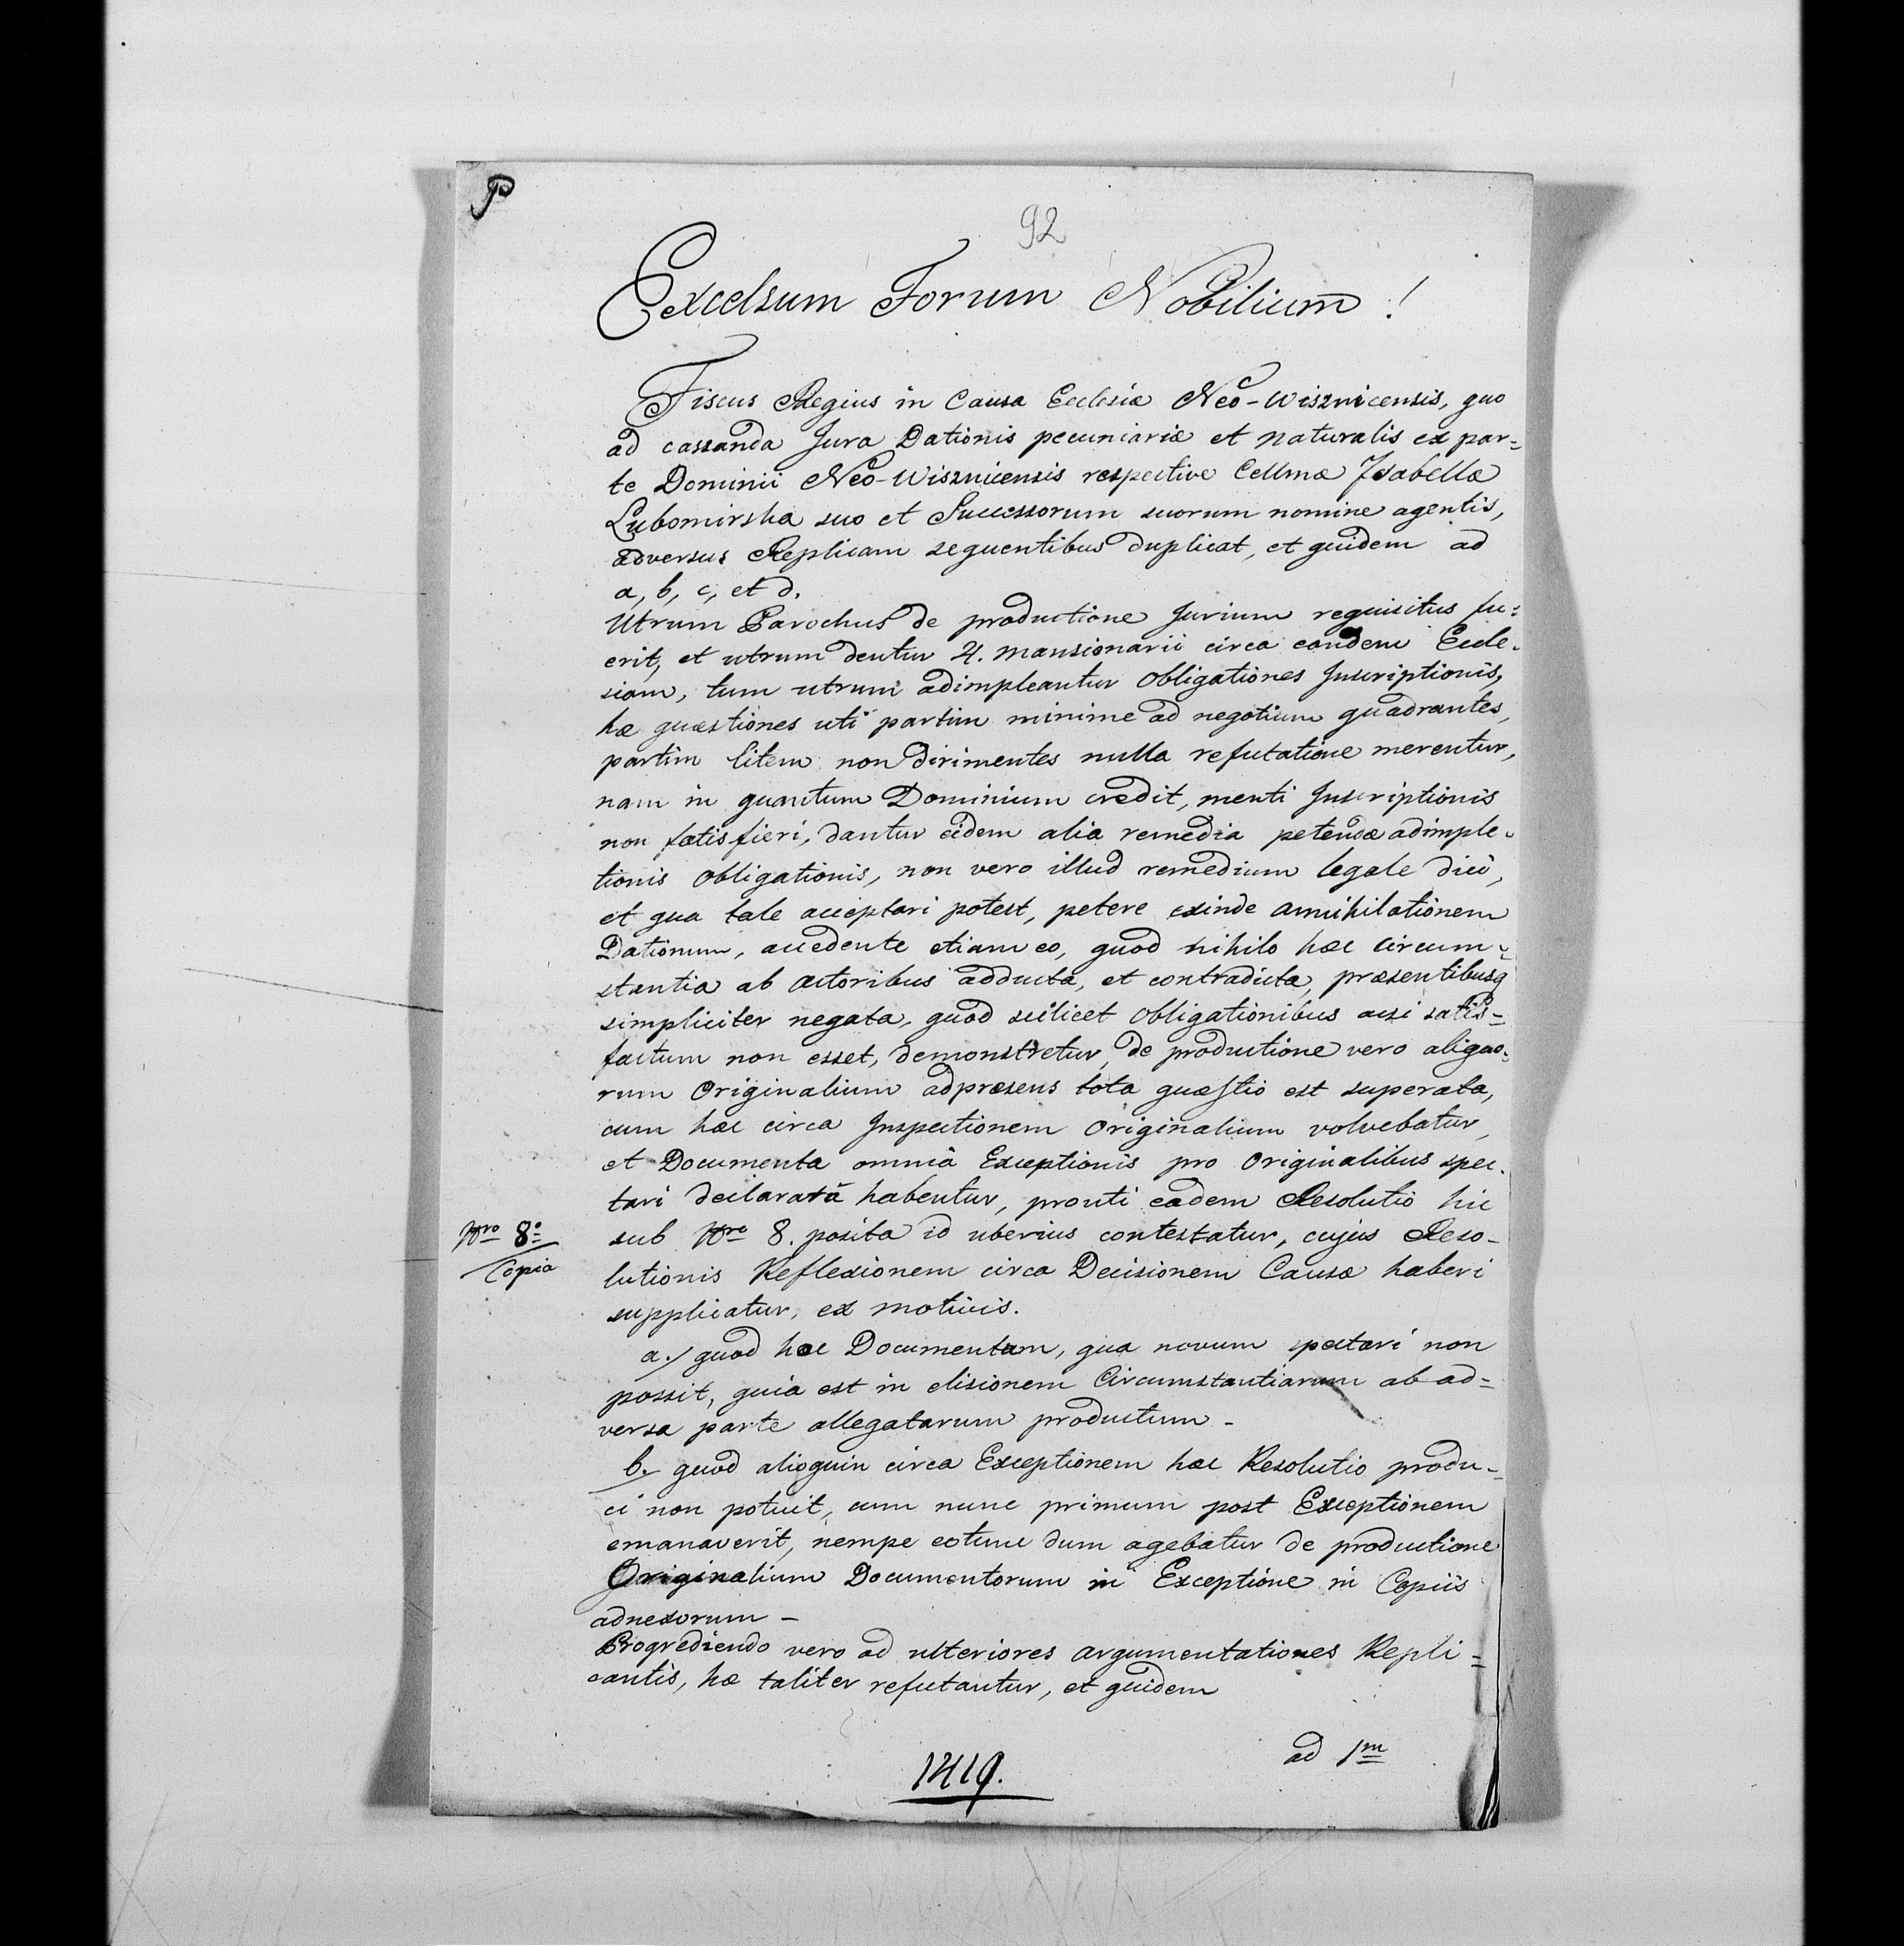 P
92
Excelsum Forum Nobilium!
Fiscus Regius in Causa Ecclesiæ Neo-Wisznicensis, quo
ad cassanda Jura Dationis pecuniariæ et naturalis ex par=
te Dominii Neo-Wisznicensis respective Cellmæ Isabellæ
Lubomirska suo et Successorum suorum nomine agentis,
adversus Replicam sequentibus duplicat, et quidem ad
a, b, c, et d.
Utrum Parochus de productione Jurium requisitus fu=
erit, et utrum dentur 4. mansionarii circa eandem Eccle=
siam, tum utrum adimpleantur obligationes Inscriptionis,
hæ quæstiones uti partim minime ad negotium quadrantes,
partim litem non dirimentes nulla refutatione merentur,
nam in quantum Dominium credit, menti Inscriptionis
non satisfieri, dantur eidem alia remedia petendæ adimple=
tionis obligationis, non vero illud remedium legale dici,
et qua tale acceptari potest, petere exinde annihilationem
Dationum, accedente etiam eo, quod nihilo hæc circum=
stantia ab actoribus adducta, et contradicta, præsentibusq
simpliciter negata, quod scilicet obligationibus acsi satis=
factum non esset, demonstretur, de productione vero aliquo=
rum Originalium adpræsens tota quæstio est superata,
cum hæc circa Inspectionem Originalium volvebatur,
et Documenta omnia Exceptionis pro Originalibus spec=
tari declarata habentur, prouti eadem Resolutio hic
Nro 8º
sub Nro 8. posita id uberius contestatur, cujus Reso-
Copia
lutionis Reflexionem circa Decisionem Causæ haberi
supplicatur, ex motivis.
a./ quod hoc Documentum, qua novum spectari non
possit, quia est in elisionem Circumstantiarum ab ad=
versa parte allegatarum productum -
b./ quod alioquin circa Exceptionem hæc Resolutio produ=
ci non potuit, cum nunc primum post Exceptionem
emanaverit, nempe eotunc dum agebatur de productione
Originalium Documentorum in Exceptione in Copiis
adnexorum -
Progrediendo vero ad ulteriores argumentationes Repli=
cantis, hæ taliter refutantur, et quidem
ad 1m
1419.